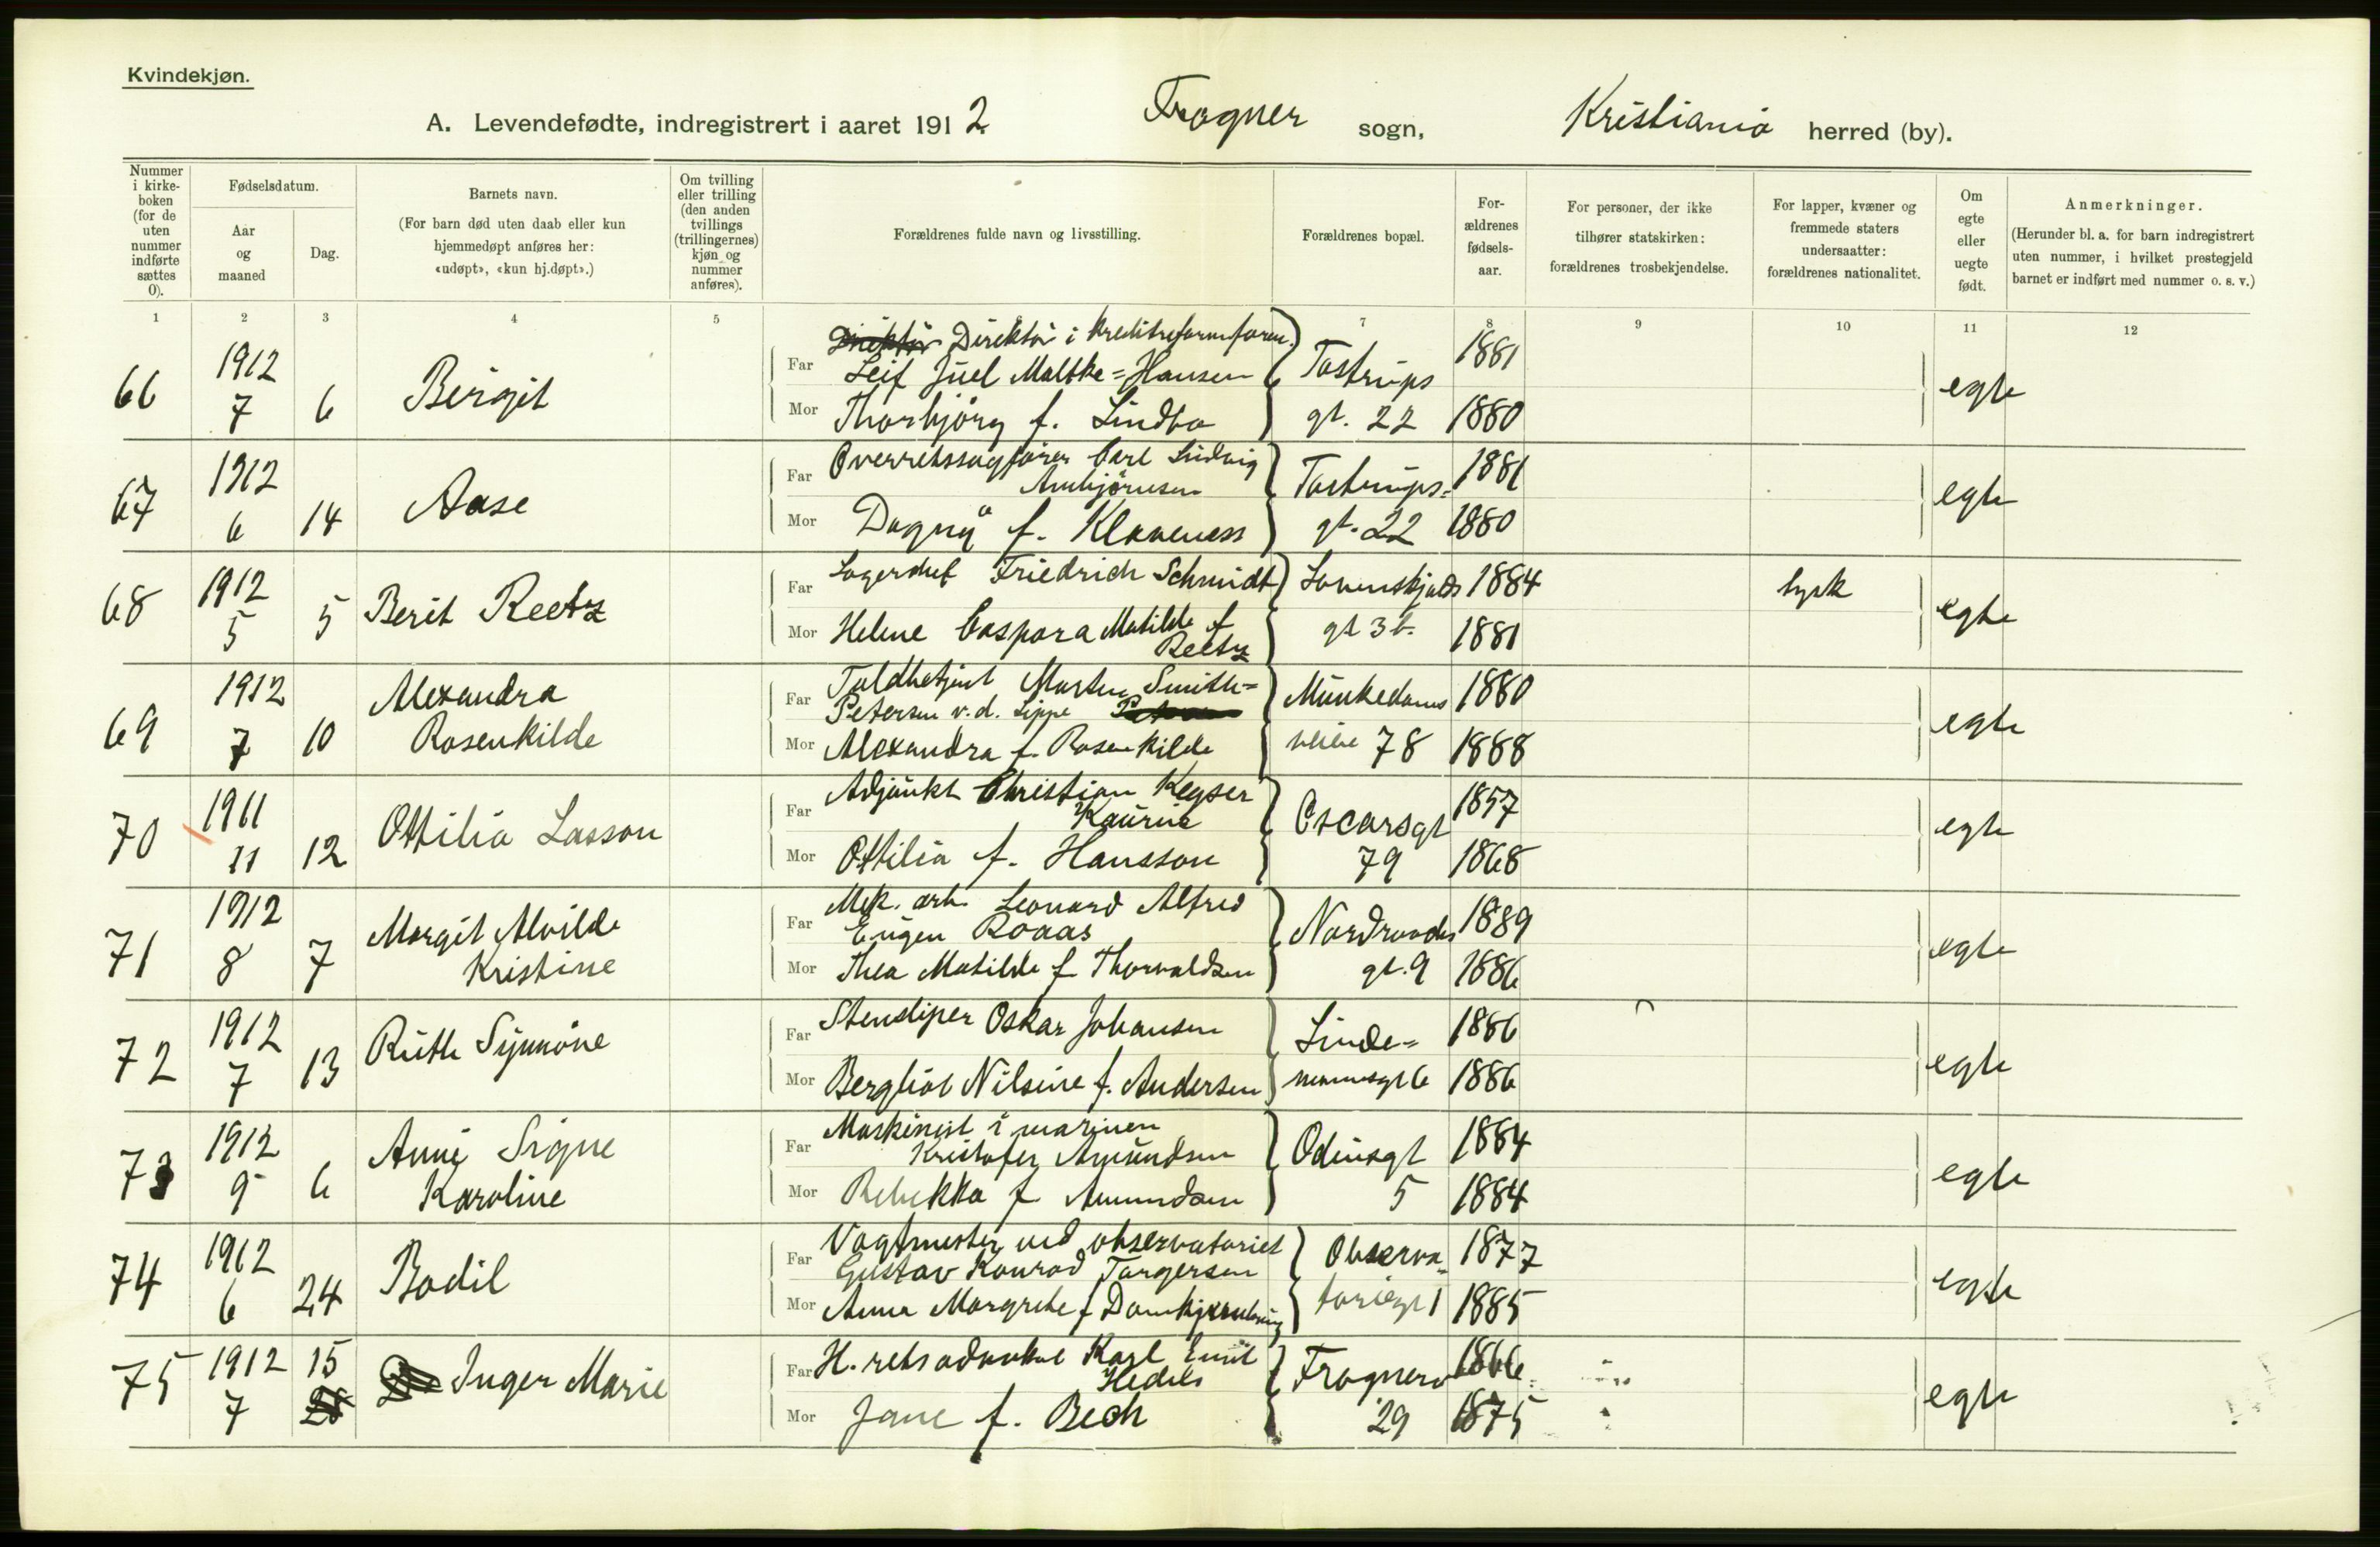 Kvindekjøn.
A. Levendefødte, indregistrert i aaret 1912 Frogner sogn, Kristiania herred (by).
Nummer i kirke-boken (for de uten nummer indførte sættes 0).
Fødselsdatum.
Aar og maaned
Dag.
Barnets navn.
(For barn død uten daab eller kun hjemmedøpt anføres her: «udøpt», «kun hj.døpt».)
Om tvilling eller trilling (den anden tvillings (trillingernes) kjøn og nummer anføres).
Forældrenes fulde navn og livsstilling.
Forældrenes bopæl.
For-ældrenes fødsels-aar.
For personer, der ikke tilhører statskirken: forældrenes trosbekjendelse.
For lapper, kvæner og fremmede staters undersaatter: forældrenes nationalitet.
Om egte eller uegte født.
Anmerkninger.
(Herunder bl. a. for barn indregistrert uten nummer, i hvilket prestegjeld barnet er indført med nummer o. s. v.)
1 2 3 4 5 7 8 9 10 11 12
Direktør Direktør i Kreditreformforen.
66 1912 7 6 Birgit Far Leif Juel Maltke=Hansen Tostrups 1881 egte
Mor Thorbjørg f. Lindbo gt. 22 1880
67 1912 6 14 Aase Far Overretssagfører Carl Ludvig Tostrups= 1881 egte
Arnbjörnsen
Mor Dagny f. Klaveness gt. 22 1880
68 1912 5 5 Berit Reetz Far Lagerchef Friedrich Schmidt Løvenskjolds 1884 tysk egte
Mor Helene Caspara Matilde f. gt 3 b. 1881
Reetz
69 1912 7 10 Alexandra Far Toldbetjent Morten Smith= Munkedams 1880 egte
Rosenkilde Petersen v.d. Lippe
Mor Alexandra f. Rosenkilde veien 78 1888
70 1911 11 12 Ottilia Lasson Far Adjunkt Christian Keyser Oscarsgt 1857 egte
Kaurin
Mor Ottilia f. Hansson 79 1868
71 1912 8 7 Margit Alvilde Far Mek. arb. Leonard Alfred Nordraaks 1889 egte
Kristine Eugen Roaas
Mor Thea Matilde f Thorvaldsen gt. 9 1886
72 1912 7 13 Ruth Synnöve Far Stensliper Oskar Johansen Linde= 1886 egte
Mor Bergliot Nilsine f. Andersen 6 1886
73 1912 9 6 Anni Signe Far Maskinist i marinen Odinsgt 1884 egte
Karoline Kristofer Amundsen
Mor Rebekka f Amundsen 5 1884
74 1912 6 24 Bodil Far Vagtmester ved observatoriet Observa 1877 egte
Gustav Konrad Torgersen
Mor Anna Margrethe f toriegt 1 1885
75 1912 7 15 Inger Marie Far H. retsadvokat Karl Emil Frognerv 1866 egte
Mor Jane f. Bech 29 1875